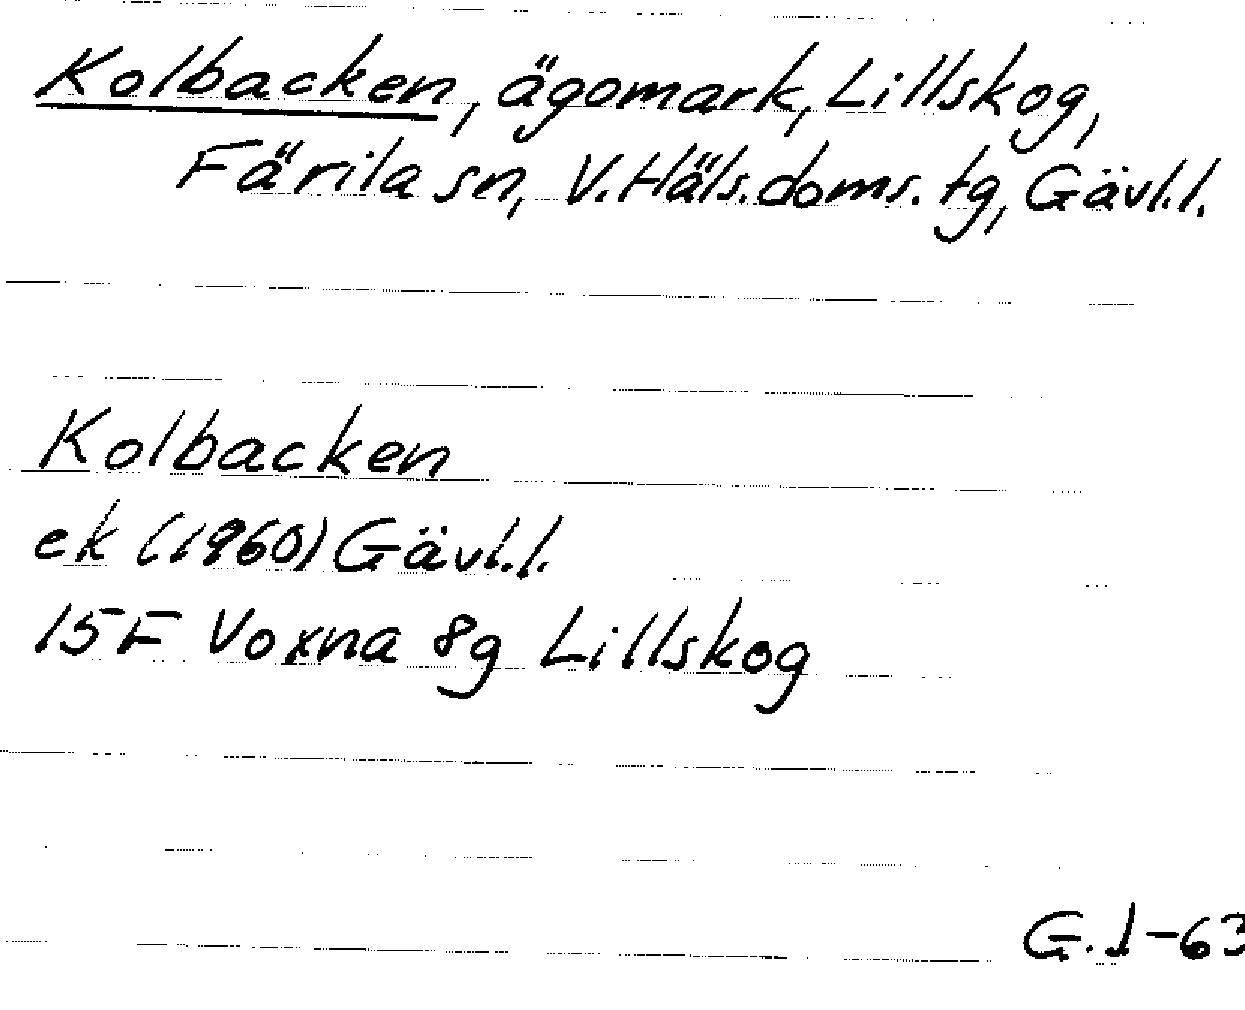 Kolbacken, ägomark, Lillskog,
Färila sn, V. Häls. doms. tg, Gävl.l.
Kolbacken
ek (1960) Gävl.l.
15F Voxna 8g Lillskog
G.J-63